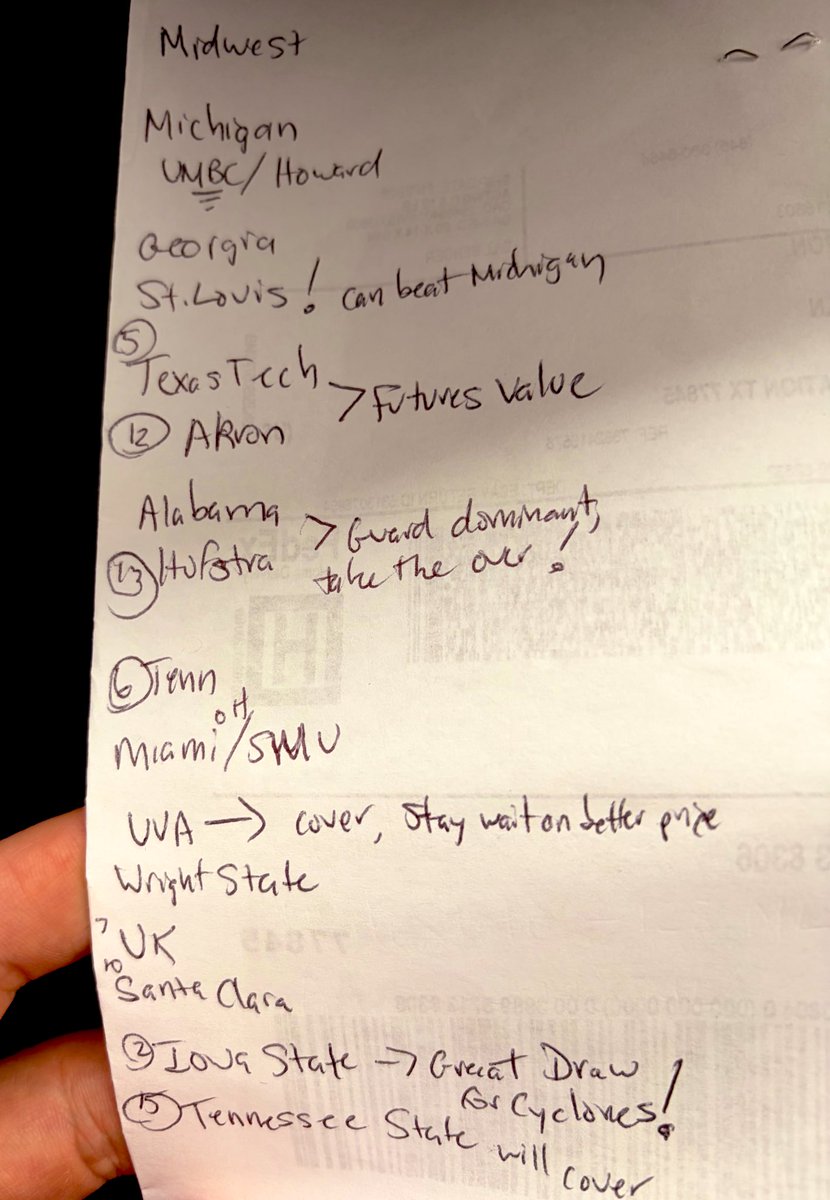 Midwest
Michigan
UMBC/Howard
Georgia
St. Louis! can beat Michigan
5
Texas Tech > Futures Value
12 Akron
Alabama > Guard dominant,
13 Hofstra take the over!
6 Tenn
Miami OH/SMU
UVA → cover, Stay wait on better price
Wright State
7 UK
10
Santa Clara
2 Iowa State → Great Draw
for Cyclones!
15 Tennessee State will
cover
77845